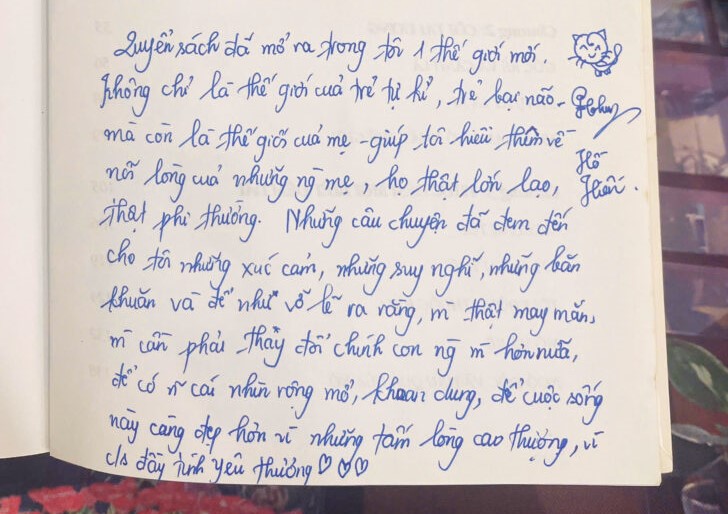 Quyển sách đã mở ra trong tôi 1 thế giới mới.
Không chỉ là thế giới của trẻ tự kỉ, trẻ bại não -
mà còn là thế giới của mẹ - giúp tôi hiểu thêm về
nỗi lòng của những ng mẹ, họ thật lớn lao,
thật phi thường. Những câu chuyện đã đem đến
cho tôi những xúc cảm, những suy nghĩ, những băn
khoăn và để như vỡ lẽ ra rằng, m thật may mắn,
m cần phải thay đổi chính con ng m hơn nữa,
để có n̄ cái nhìn rộng mở, khoan dung, để cuộc sống
này càng đẹp hơn vì những tấm lòng cao thượng, vì
c/s đầy tình yêu thương ♡♡♡
Hồ
Hiền.